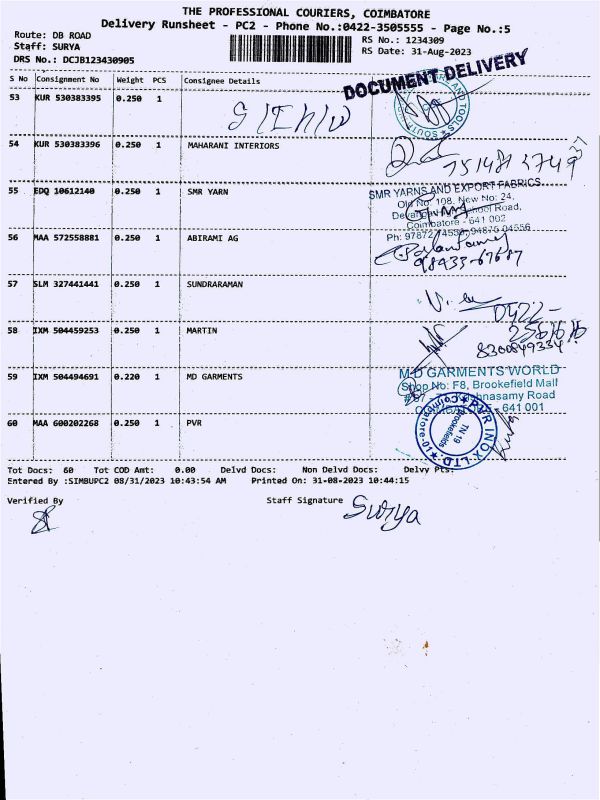 THE PROFESSIONAL COURIERS, COIMBATORE
Delivery Runsheet - PC2 - Phone No.:0422-3505555 - Page No.:5
Route: DB ROAD
RS No.: 1234309
Staff: SURYA
RS Date: 31-Aug-2023
DRS No.: DCJB123430905
DOCUMENT DELIVERY
S No Consignment No Weight PCS Consignee Details
53 KUR 530383395 0.250 1
54 KUR 530383396 0.250 1 MAHARANI INTERIORS
55 EDQ 10612140 0.250 1 SMR YARN
SMR YARNS AND EXPORT FABRICS
Old No: 108, New No: 24,
Coimbatore - 641 002
56 MAA 572558881 0.250 1 ABIRAMI AG
98433-67687
57 SLM 327441441 0.250 1 SUNDRARAMAN
0422-
58 IXM 504459253 0.250 1 MARTIN
8300849334
59 IXM 504494691 0.220 1 MD GARMENTS
M D GARMENTS WORLD
Shop No: F8, Brookefield Mall
60 MAA 600202268 0.250 1 PVR
PVR INOX LTD
TN 19
Brookefields
Coimbatore-01
Tot Docs: 60 Tot COD Amt: 0.00 Delvd Docs: Non Delvd Docs: Delvy Pts:
Entered By :SIMBUPC2 08/31/2023 10:43:54 AM Printed On: 31-08-2023 10:44:15
Verified By
Staff Signature Surya